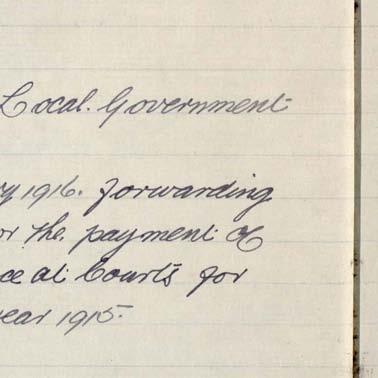 Local Government
1916. forwarding
the payment of
at Courts for
year 1915.